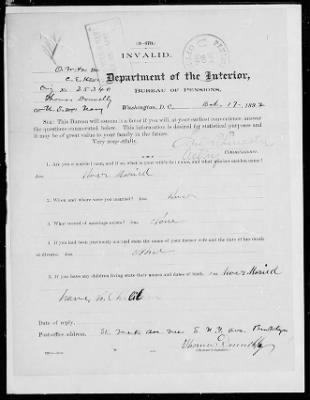 (3-474.)
INVALID.
Department of the Interior,
BUREAU OF PENSIONS,
No 25340
Thomas Donnelly
U.S. Navy
Washington, D. C., Oct. 17, 1892
SIR: This Bureau will esteem it a favor if you will, at your earliest convenience, answer
the questions enumerated below. This information is desired for statistical purposes and
it may be of great value to your family in the future.
Very respectfully,
Commissioner.
1. Are you a married man, and if so, what is your wife's full name, and what was her maiden name?
Never Maried
2. When and where were you married?
Never
3. What record of marriage exists?
None
4. If you had been previously married state the name of your former wife and the date of her death
or divorce.
None
5. If you have any children living state their names and dates of birth.
Never Maried
have no Children
Date of reply,
Post-office address,
N.Y. ave Brooklyn
Thomas Donnelly